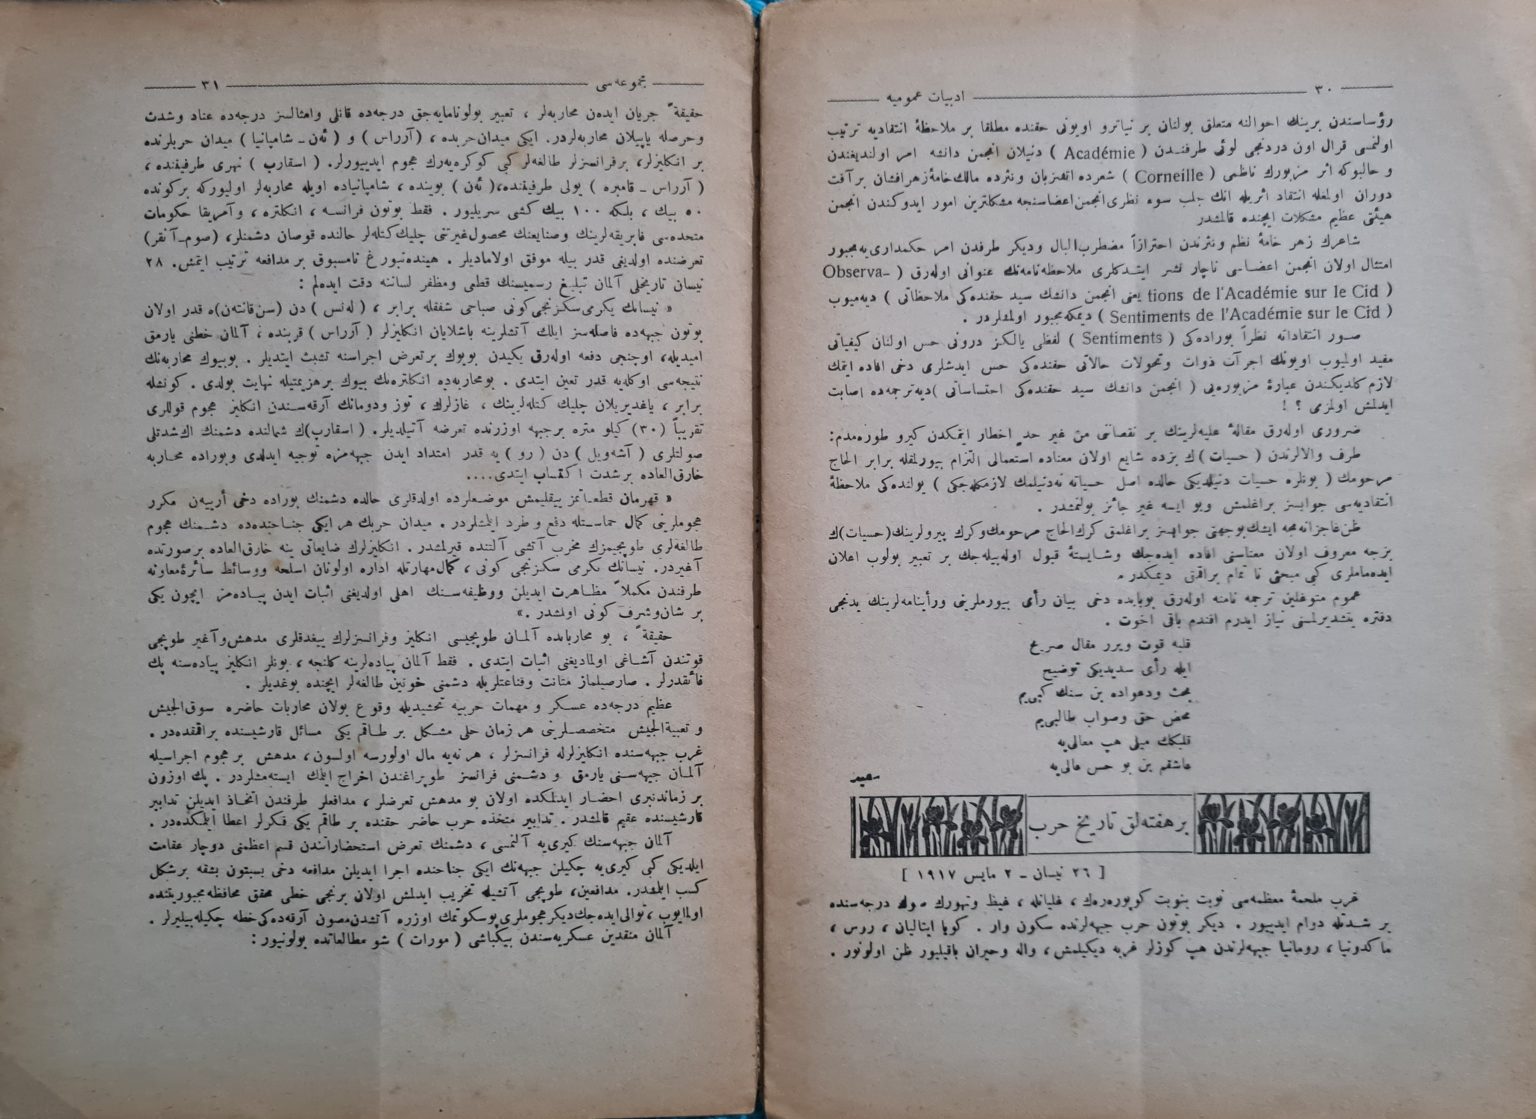 ٣٠ ادبیات عمومیه
رؤساسندن برینك احوالنه متعلق بولنان بر تیاترو اویونی حقنده مطلقا بر ملاحظهٔ انتقادیه ترتیب
اولنمسی قرال اون دردنجی لوئی طرفندن ( Académie ) دنیلان انجمن دانشه امر اولندیغندن
و حالبوكه اثر مزبورك ناظمی ( Corneille ) شعرده آتشزبان ونثرده مالك خامهٔ زهرافشان بر آفت
دوران اولمغله انتقاد اثریله آنك جلب سوء نظری انجمن اعضاسنجه مشكلترین امور ایدوكندن انجمن
هیئتی عظیم مشكلات ایچنده قالمشدر
شاعرك زهر خامهٔ نظم ونثرندن احترازاً مضطرب البال ودیكر طرفدن امر حكمداری‌یه مجبور
امتثال اولان انجمن اعضاسی ناچار نشر ایتدكلری ملاحظه‌نامه‌نك عنوانی اوله‌رق ( Observa-
tions de l'Académie sur le Cid ) یعنی انجمن دانشك سید حقنده‌كی ملاحظاتی ) دیه‌میوب
( Sentiments de l'Académie sur le Cid ) دیمكه مجبور اولمشلردر .
صور انتقاداته نظراً بوراده‌كی ( Sentiments ) لفظی یالكز درونی حس اولنان كیفیاتی
مفید اولیوب اویونك اجرآت ذوات وتحولات حالاتی حقنده‌كی حس ایدشلری دخی افاده ایتمك
لازم كلدیكندن عبارهٔ مزبوره‌یی ( انجمن دانشك سید حقنده‌كی احتساساتی ) دیه ترجمه‌ده اصابت
ایدلمش اولمزمی ؟ !
ضروری اوله‌رق مقالهٔ علیه‌لرینك بر نقصانی من غیر حد اخطار ایتمكدن كیرو طوره‌مدم :
طرف والالرندن ( حسیات ) ك بزده شایع اولان معناده استعمالی التزام بیورلمقله برابر الحاج
مرحومك ( بونلره حسیات دنیلدیكی حالده اصل حسیاته نه‌دنیلمك لازمكله‌جكی ) یولنده‌كی ملاحظهٔ
انتقادیه‌سی جوابسز براغلمش وبو ایسه غیر جائز بولنمشدر .
ظن عاجزانه‌مجه ایشك بوجهتی جوابسز براغلمق كرك الحاج مرحومك وكرك پیرولرینك ( حسیات ) ك
بزجه معروف اولان معناسنی افاده ایده‌جك وشایستهٔ قبول اوله‌بیله‌جك بر تعبیر بولوب اعلان
ایده‌ماملری كبی مبحثی نا تمام براقمق دیمكدر .
عموم متوغلین ترجمه نامنه اوله‌رق بوبابده دخی بیان رأی بیورملرینی ورأینامه‌لرینك یدنجی
دفتره یتشدیرلمسنی نیاز ایدرم افندم باقی اخوت .
قلبه قوت ویرر مقال صریح
ایله رأی سدیدیكی توضیح
بحث ودعواده بن سنك كبی‌یم
محض حق وصواب طالبی‌یم
قلبكك میلی هپ معالی‌یه
عاشقم بن بو حس عالی‌یه
سعید
بر هفته‌لق تاریخ حرب
[ ٢٦ نیسان - ٢ مایس ١٩١٧ ]
غرب ملحمهٔ معظمه‌سی نوبت بنوبت كوپوره‌رك ، غلیانله ، غیظ وتهورك صوك درجه‌سنده
بر شدتله دوام ایدییور . دیكر بوتون حرب جبهه‌لرنده سكون وار . كویا ایتالیان ، روس ،
ماكدونیا ، رومانیا جبهه‌لرندن هپ كوزلر غربه دیكیلمش ، واله وحیران باقیلیور ظن اولونور .
مجموعه‌سی ٣١
حقیقةً جریان ایدن محاربه‌لر ، تعبیر بولونامایه‌جق درجه‌ده قانلی وامثالسز درجه‌ده عناد وشدت
وحرصله یاپیلان محاربه‌لردر. ایكی میدان حربده ، ( آرراس ) و ( ئه‌ن - شامپانیا ) میدان حربلرنده
بر انكلیزلر، برفرانسزلر طالغه‌لر كبی كوكره‌یه‌رك هجوم ایدییورلر. ( اسقارپ ) نهری طرفیقنده ،
( آرراس - قامبره ) یولی طرفیقنده، ( ئه‌ن ) بوینده ، شامپانیاده اویله محاربه‌لر اولیوركه بركونده
٥٠ بیك ، بلكه ١٠٠ بیك كشی سریلیور . فقط بوتون فرانسه ، انكلتره ، وآمریقا حكومات
متحده‌سی فابریقه‌لرینك وصنایعنك محصول غیرتی چلیك كتله‌لر حالنده قوصان دشمنلر، (صوم-آنقر)
تعرضنده اولدیغی قدر بیله موفق اولامادیلر . هینده‌نبورغ نامسبوق بر مدافعه ترتیب ایتمش. ٢٨
نیسان تاریخلی آلمان تبلیغ رسمیسنك قطعی ومظفر لساننه دقت ایده‌لم :
« نیسانك یكرمی سكزنجی كونی صباحی شفقله برابر ، ( له‌نس ) دن ( سن‌قانته‌ن ) ه قدر اولان
بوتون جبهه‌ده فاصله‌سز ایلك آتشلرینه باشلایان انكلیزلر ( آرراس ) قربنده ، آلمان خطنی یارمق
امیدیله، اوجنجی دفعه اوله‌رق یكیدن بویوك برتعرض اجراسنه تشبث ایتدیلر . بوبیوك محاربه‌نك
نتیجه‌سی اوكله‌یه قدر تعین ایتدی . بومحاربه‌ده انكلتره‌نك بیوك برهزیمتیله نهایت بولدی . كونشله
برابر ، یاغدیریلان چلیك كتله‌لرینك ، غازلرك ، توز ودومانك آرقه‌سندن انكلیز هجوم قوللری
تقریباً (٣٠) كیلو متره برجبهه اوزرنده تعرضه آتیلدیلر. ( اسقارپ )ك شمالنده دشمنك اك شدتلی
صولتلری ( آشه‌ویل ) دن ( رو ) یه قدر امتداد ایدن جبهه‌مزه توجیه ایدلدی وبوراده محاربه
خارق‌العاده برشدت اكتساب ایتدی....
« قهرمان قطعه‌اتمز ییقیلمش موضعلرده اولدقلری حالده دشمنك بوراده دخی مكرر
هجوملرینی كمال حماستله دفع و طرد ایلمشلردر . میدان حربك هر ایكی جناحنده‌ده دشمنك هجوم
طالغه‌لری طوپجیمزك مخرب آتشی آلتنده قیرلمشدر . انكلیزلرك ضایعاتی ینه خارق‌العاده برصورتده
آغیردر. نیسانك یكرمی سكزنجی كونی ، كمال مهارتله اداره اولونان اسلحه ووسائط سائرهٔ معاونه
طرفندن مكملاً مظاهرت ایدیلن ووظیفه‌سنك اهلی اولدیغنی اثبات ایدن پیاده‌مز ایچون یكی
بر شان وشرف كونی اولمشدر .»
حقیقةً ، بو محارباده آلمان طوپجیسی انكلیز وفرانسزلرك ییغدقلری مدهش وآغیر طوپجی
قوتندن آشاغی اولمادیغنی اثبات ایتدی . فقط آلمان پیاده‌لرینه كلنجه ، بونلر انكلیز پیاده‌سنه پك
فائقدرلر . صارصیلماز متانت وقناعتلریله دشمنی خونین طالغه‌لر ایچنده بوغدیلر .
عظیم درجه‌ده عسكر و مهمات حربیه تحشیدیله وقوع بولان محاربات حاضره سوق‌الجیش
و تعبیةالجیش متخصصلرینی هر زمان حلی مشكل بر طاقم یكی مسائل قارشیسنده براقمقده‌در .
غرب جبهه‌سنده انكلیزلرله فرانسزلر ، هر نه‌یه مال اولورسه اولسون ، مدهش بر هجوم اجراسیله
آلمان جبهه‌سنی یارمق و دشمنی فرانسز طوپراغندن اخراج ایتمك ایسته‌مشلردر . پك اوزون
بر زماندنبری احضار ایدلمكده اولان بو مدهش تعرضلر ، مدافعلر طرفندن اتخاذ ایدیلن تدابیر
قارشیسنده عقیم قالمشدر . تدابیر متخذه حرب حاضر حقنده بر طاقم یكی فكرلر اعطا ایلمكده‌در .
آلمان جبهه‌سنك كیری‌یه آلنمسی ، دشمنك تعرض استحضاراتندن قسم اعظمنی دوچار عقامت
ایلدیكی كبی كیری‌یه چكیلن جبهه‌نك ایكی جناحنده اجرا ایدیلن مدافعه دخی بسبتون بشقه برشكل
كسب ایلمشدر. مدافعین، طوپجی آتشیله تخریب ایدلمش اولان برنجی خطی محقق محافظه مجبوریتنده
اولمایوب ، توالی ایده‌جك دیكر هجوملری پوسكورتمك اوزره آتشدن مصون آرقه‌ده‌كی خطه چكیله‌بیلیرلر .
آلمان منقدین عسكریه‌سندن بیكباشی ( مورات ) شو مطالعاتده بولونیور :